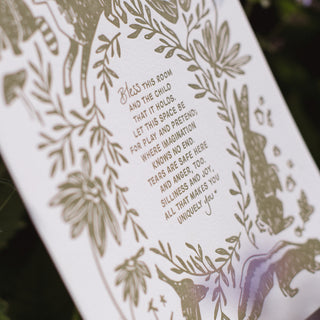 Bless THIS ROOM
AND THE CHILD
THAT IT HOLDS.
LET THIS SPACE BE
FOR PLAY AND PRETEND;
WHERE IMAGINATION
KNOWS NO END.
TEARS ARE SAFE HERE
AND ANGER, TOO.
SILLINESS AND JOY,
ALL THAT MAKES YOU
UNIQUELY you.